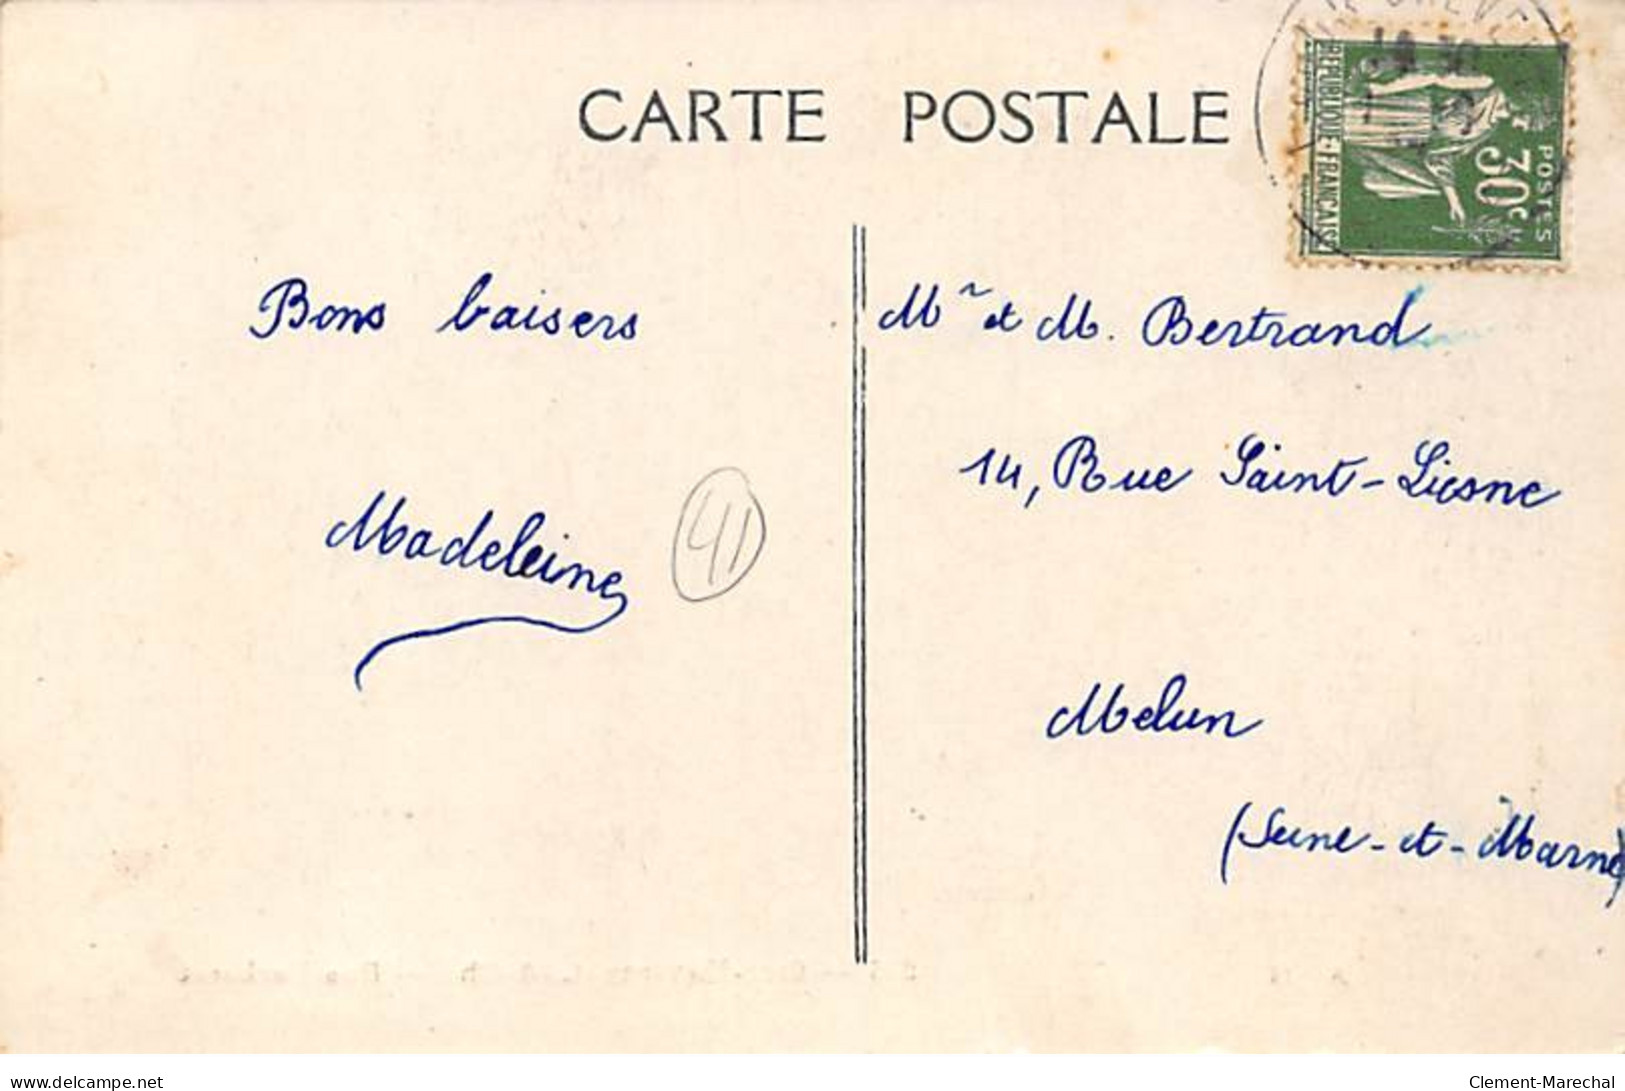 CARTE POSTALE
RÉPUBLIQUE FRANÇAISE
POSTES
30c
Bons baisers
Madeleine
41
Mr et M. Bertrand
14, Rue Saint-Liesne
Melun
(Seine-et-Marne)
www.delcampe.net
Clement-Marechal